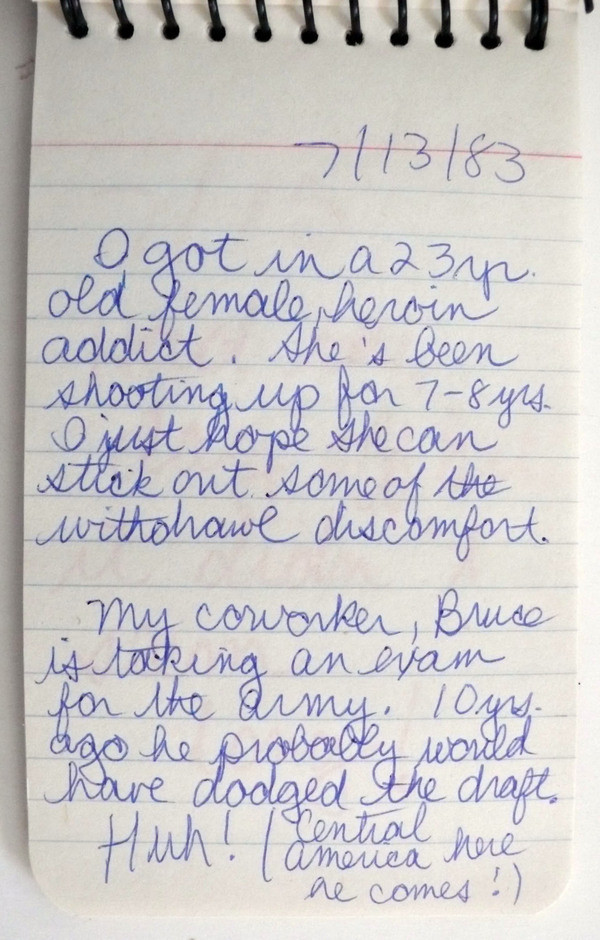 7/13/83
I got in a 23 yr.
old female, heroin
addict. She's been
shooting up for 7-8 yrs.
I just hope she can
stick out some of the
withdrawl discomfort.
My coworker, Bruce
is taking an exam
for the army. 10 yrs.
ago he probably would
have dodged the draft.
Huh! (Central
america here
he comes!)